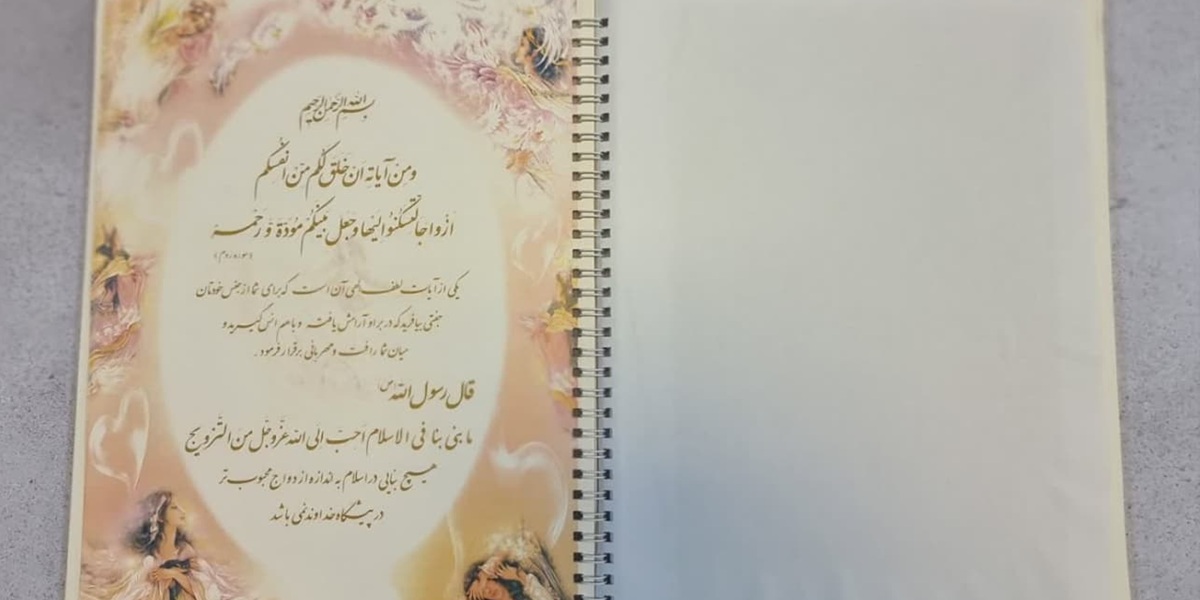 بسم الله الرحمن الرحیم
ومن آیاته ان خلق لکم من انفسکم
ازواجا لتسکنوا الیها وجعل بینکم مودة و رحمة
(سوره روم)
یکی از آیات لطف الهی آن است که برای شما از جنس خودتان
جفتی بیافرید که در بر او آرامش یافته و با هم انس گیرید و
میان شما رافت و مهربانی برقرار فرمود.
قال رسول الله (ص)
ما بنی بنا فی الاسلام احب الی الله عزوجل من التزویج
هیچ بنایی در اسلام به اندازه ازدواج محبوب تر
در پیشگاه خداوند نمی باشد